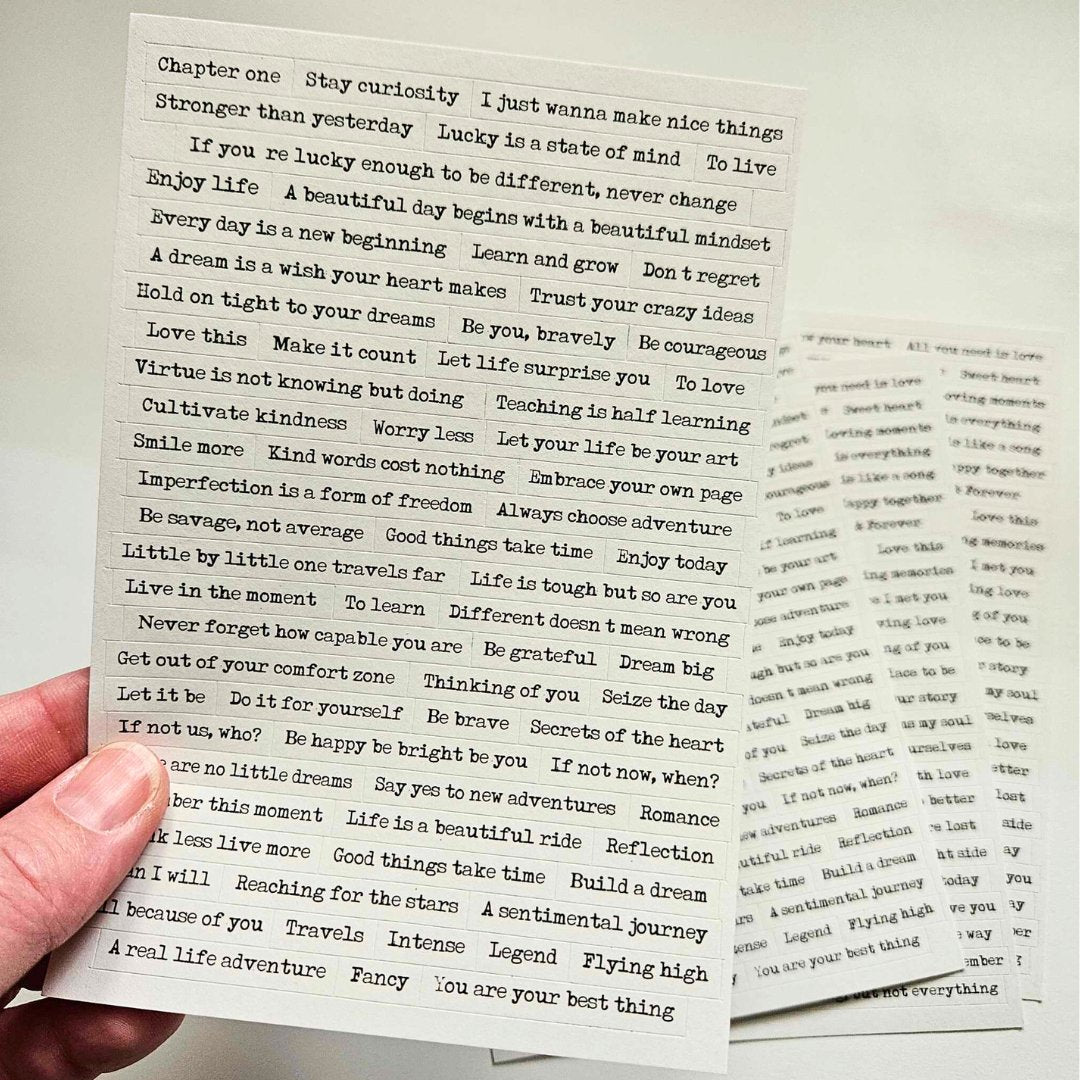 Chapter one Stay curiosity I just wanna make nice things
Stronger than yesterday Lucky is a state of mind To live
If you re lucky enough to be different, never change
Enjoy life A beautiful day begins with a beautiful mindset
Every day is a new beginning Learn and grow Don t regret
A dream is a wish your heart makes Trust your crazy ideas
Hold on tight to your dreams Be you, bravely Be courageous
Love this Make it count Let life surprise you To love
Virtue is not knowing but doing Teaching is half learning
Cultivate kindness Worry less Let your life be your art
Smile more Kind words cost nothing Embrace your own page
Imperfection is a form of freedom Always choose adventure
Be savage, not average Good things take time Enjoy today
Little by little one travels far Life is tough but so are you
Live in the moment To learn Different doesn t mean wrong
Never forget how capable you are Be grateful Dream big
Get out of your comfort zone Thinking of you Seize the day
Let it be Do it for yourself Be brave Secrets of the heart
If not us, who? Be happy be bright be you If not now, when?
are no little dreams Say yes to new adventures Romance
this moment Life is a beautiful ride Reflection
less live more Good things take time Build a dream
I will Reaching for the stars A sentimental journey
because of you Travels Intense Legend Flying high
A real life adventure Fancy You are your best thing
your heart All you need is love
you need is love Sweet heart
Sweet heart moments
loving moments is everything
is everything is like a song
ideas is like a song together
To love together Forever
learning Forever Love this
be your art Love this memories
your own page memories I met you
adventure I met you love
Enjoy today love of you
but so are you of you to be
doesn t mean wrong to be story
Dream big story my soul
of you Seize the day my soul
Secrets of the heart love
you If not now, when? love
adventures Romance better lost
ride Reflection lost side
take time Build a dream side
A sentimental journey today you
Legend Flying high you
You are your best thing way
not everything